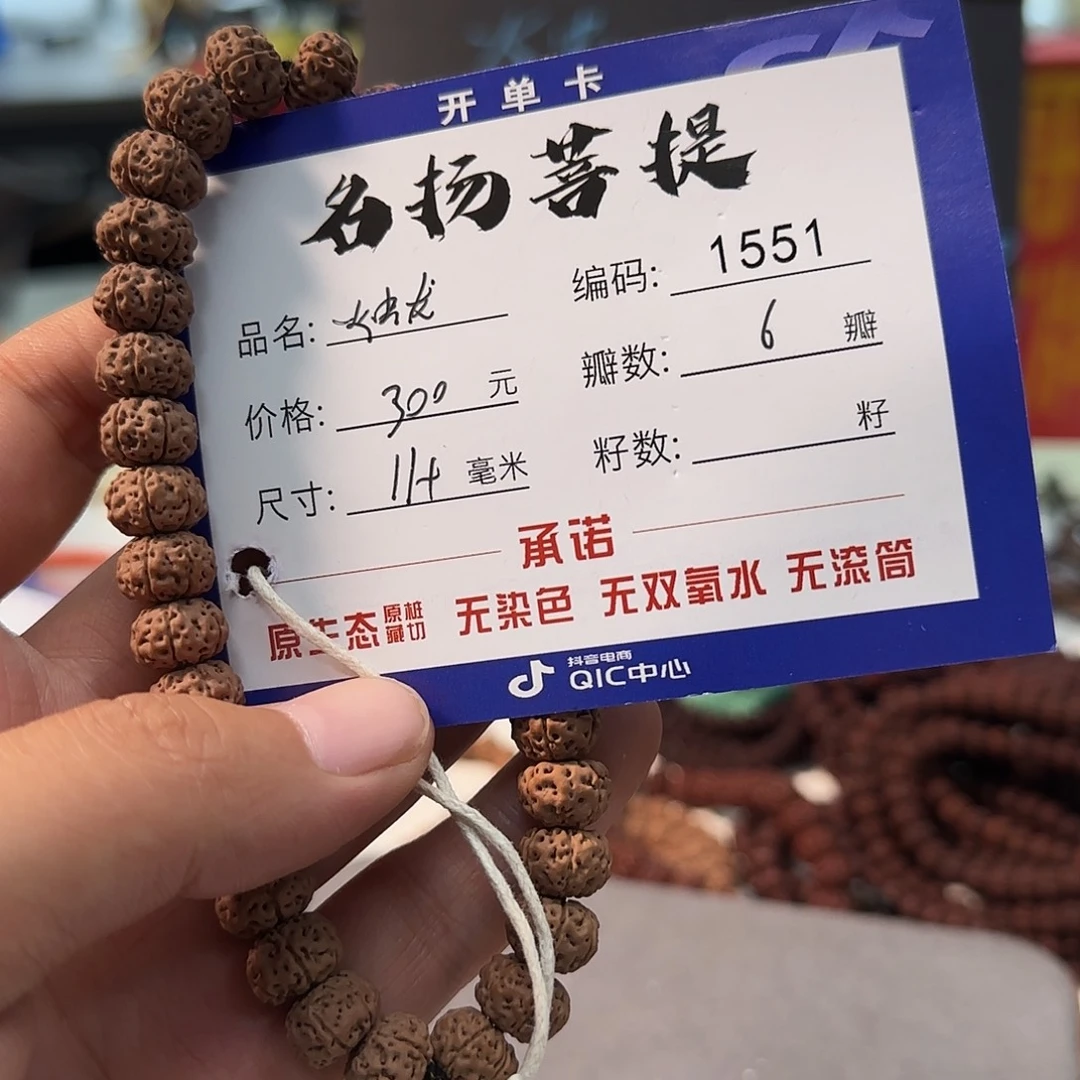 开单卡
名扬菩提
品名: 编码: 1551
价格: 300 元 瓣数: 6 瓣
尺寸: 11+ 毫米 籽数: 籽
承诺
原生态 原桩藏切 无染色 无双氧水 无滚筒
抖音电商
QIC中心